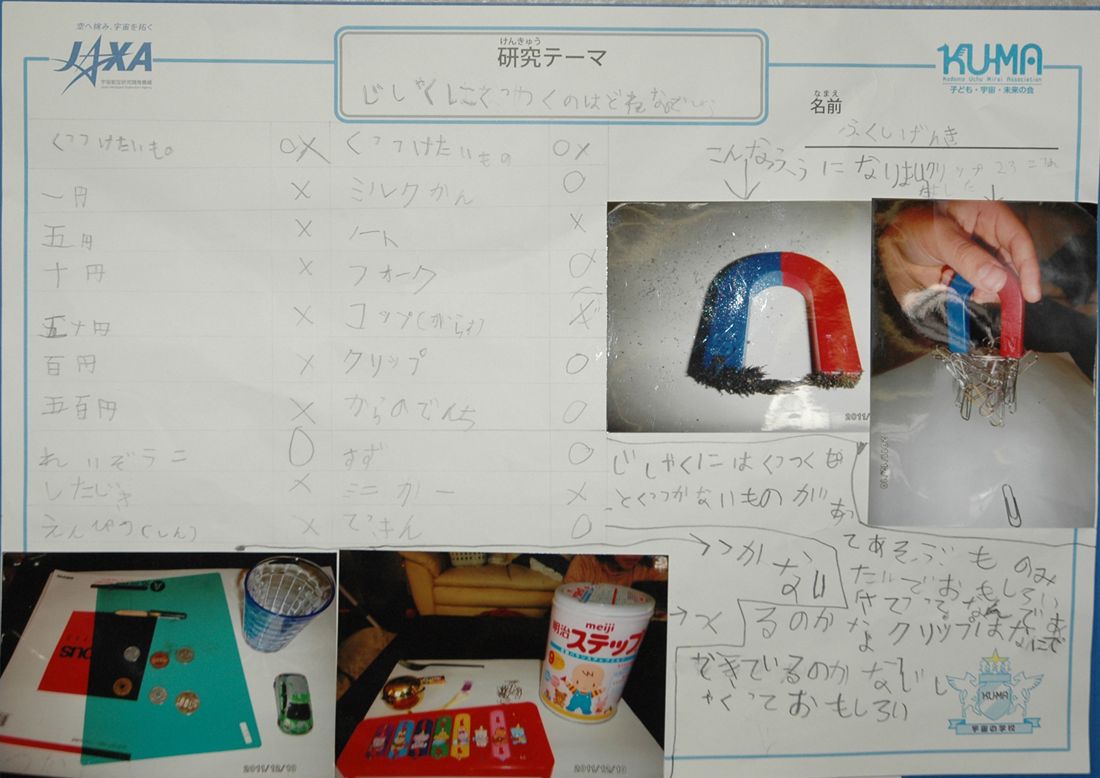 空へ挑み、宇宙を拓く
JAXA
宇宙航空研究開発機構
Japan Aerospace Exploration Agency
けんきゅう
研究テーマ
じしゃくにくっつくのはどれなでしょ
KU-MA
Kodomo Uchu Mirai Association
子ども・宇宙・未来の会
なまえ
名前
ふくしげんき
くっつけたいもの ○× くっつけたいもの ○×
一円 × ミルクかん ○
五円 × ノート ×
十円 × フォーク ○
五十円 × コップ(がらす) ×
百円 × クリップ ○
五百円 × からのでんち ○
れいぞうこ ○ すず ○
したじき × ミニカー ×
えんぴつ(しん) × てっきん ○
こんなふうになりました
クリップ23こ
2011/
2011/12/10
じしゃくにはくっつくも
とくっつかないものが
あっ
てあそぶもののみ
たいでおもしろい
→つかない
→つくるのかなよクリップはなにで
できているのかなじし
ゃくっておもしろい
meiji
明治
ステップ
2011/12/10
2011/12/10
KU-MA
宇宙の学校